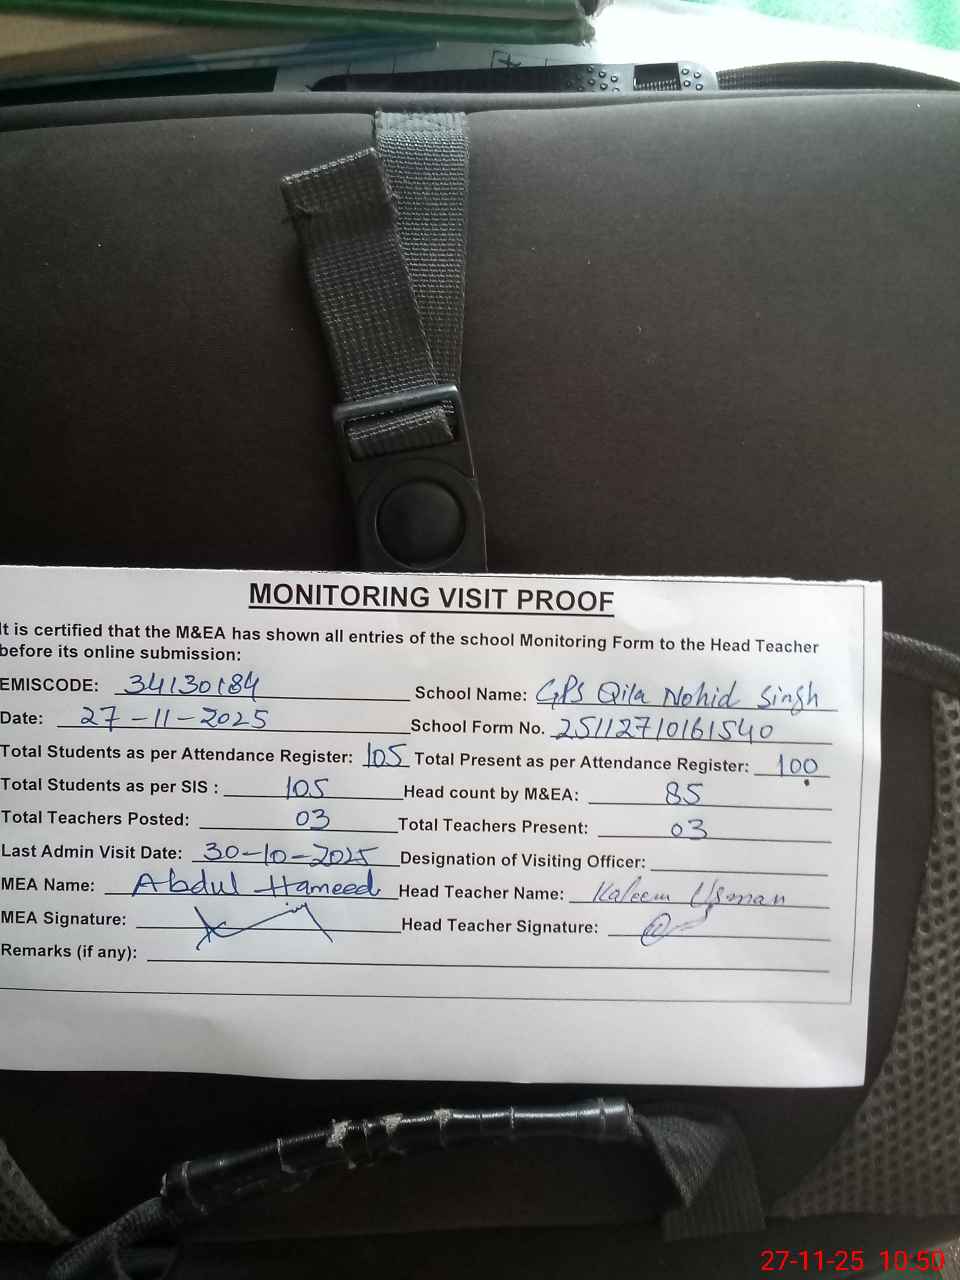 MONITORING VISIT PROOF
It is certified that the M&EA has shown all entries of the school Monitoring Form to the Head Teacher
before its online submission:
EMISCODE: 34130184 School Name: GPS Qila Nohid Singh
Date: 27-11-2025 School Form No. 25112710161540
Total Students as per Attendance Register: 105 Total Present as per Attendance Register: 100
Total Students as per SIS : 105 Head count by M&EA: 85
Total Teachers Posted: 03 Total Teachers Present: 03
Last Admin Visit Date: 30-10-2025 Designation of Visiting Officer:
MEA Name: Abdul Hameed Head Teacher Name: Kaleem Usman
MEA Signature: Head Teacher Signature:
Remarks (if any):
27-11-25 10:50